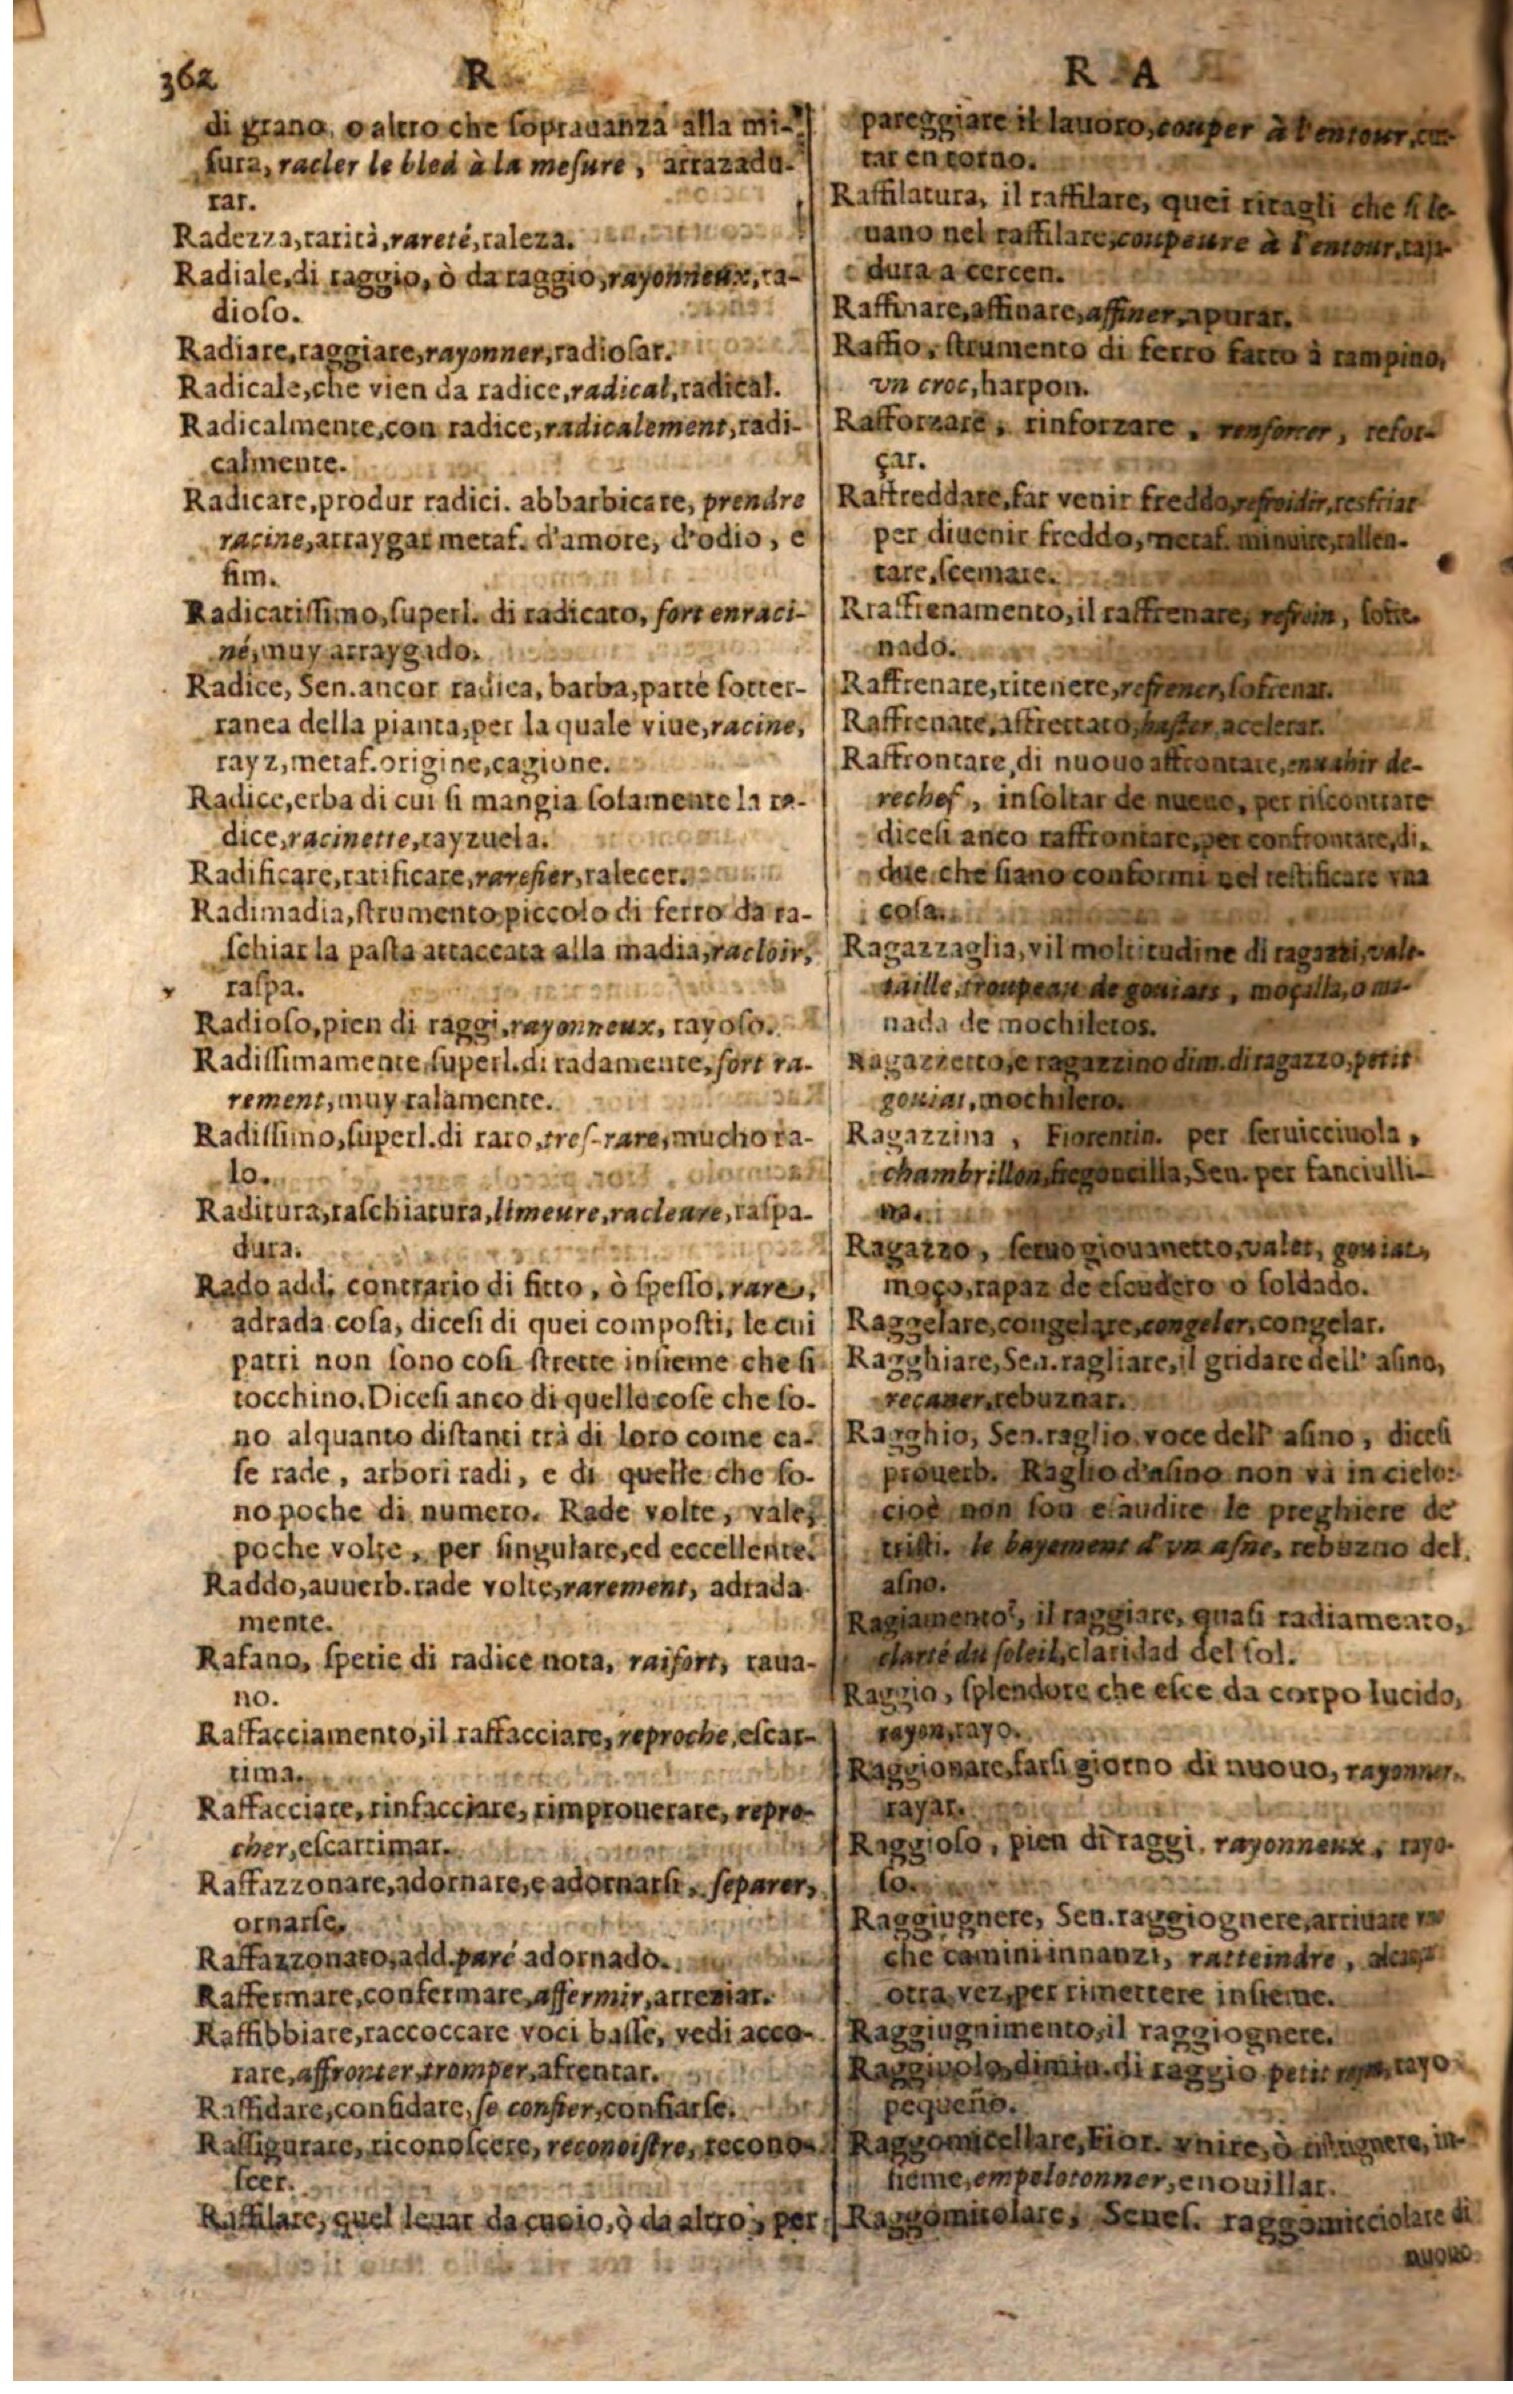 362 R
di grano, o altro che ſoprauanza alla mi-
ſura, racler le bled à la meſure, arrazadu-
rar.
Radezza, rarità, rareté, raleza.
Radiale, di raggio, ò da raggio, rayonneux, ra-
dioſo.
Radiare, raggiare, rayonner, radioſar.
Radicale, che vien da radice, radical, radical.
Radicalmente, con radice, radicalement, radi-
calmente.
Radicare, produr radici. abbarbicare, prendre
racine, arraygar metaf. d'amore, d'odio, e
ſim.
Radicatiſſimo, ſuperl. di radicato, fort enraci-
né, muy arraygado.
Radice, Sen. ancor radica, barba, parte ſotter-
ranea della pianta, per la quale viue, racine,
rayz, metaf. origine, cagione.
Radice, erba di cui ſi mangia ſolamente la ra-
dice, racinette, rayzuela.
Radificare, ratificare, rarefier, ralecer.
Radimadia, ſtrumento piccolo di ferro da ra-
ſchiar la paſta attaccata alla madia, racloir,
raſpa.
Radioſo, pien di raggi, rayonneux, rayoſo.
Radiſſimamente, ſuperl. di radamente, fort ra-
rement, muy ralamente.
Radiſſimo, ſuperl. di raro, treſ-rare, mucho ra-
lo.
Raditura, raſchiatura, limeure, racleure, raſpa-
dura.
Rado add. contrario di fitto, ò ſpeſſo, rare,
adrada coſa, diceſi di quei compoſti, le cui
parti non ſono coſi ſtrette inſieme che ſi
tocchino. Diceſi anco di quelle coſe che ſo-
no alquanto diſtanti trà di loro come ca-
ſe rade, arbori radi, e di quelle che ſo-
no poche di numero. Rade volte, vale,
poche volte, per ſingulare, ed eccellente.
Raddo, auuerb. rade volte, rarement, adrada
mente.
Rafano, ſpetie di radice nota, raifort, raua-
no.
Raffacciamento, il raffacciare, reproche, eſcar-
tima.
Raffacciare, rinfacciare, rimprouerare, repro-
cher, eſcartimar.
Raffazzonare, adornare, e adornarſi, ſeparer,
ornarſe.
Raffazzonato, add. paré adornado.
Raffermare, confermare, affermir, arreziar.
Raffibbiare, raccoccare voci baſſe, vedi acco-
rare, affronter, tromper, afrentar.
Raffidare, confidare, ſe confier, confiarſe.
Raffigurare, riconoſcere, reconoiſtre, recono-
ſcer.
Raffilare, quel leuar da cuoio, ò da altro, per
R A
pareggiare il lauoro, couper à l'entour, cor-
tar en torno.
Raffilatura, il raffilare, quei ritagli che ſi le-
uano nel raffilare, coupeure à l'entour,
dura a cercen.
Raffinare, affinare, affiner, apurar.
Raffio, ſtrumento di ferro fatto à rampino,
vn croc, harpon.
Rafforzare, rinforzare, renforcer, refor-
çar.
Raffreddare, far venir freddo, refroidir, resfriar
per diuenir freddo, metaf. minuire, rallen-
tare, ſcemare.
Rraffrenamento, il raffrenare, refrein, ſofre-
nado.
Raffrenare, ritenere, refrener, ſofrenar.
Raffrenate, affrettato, haſter, acelerar.
Raffrontare, di nuouo affrontare, enuahir de-
rechef, inſoltar de nueuo, per riſcontrare
diceſi anco raffrontare, per confrontare, di,
due che ſiano conformi nel teſtificare vna
coſa.
Ragazzaglia, vil moltitudine di ragazzi, vale-
taille, troupeau de gouiats, moçalla, o ma-
nada de mochileros.
Ragazzetto, e ragazzino dim. di ragazzo, petit
gouiat, mochilero.
Ragazzina, Fiorentin. per ſeruicciuola,
chambrillon, fregoncilla, Sen. per fanciulli-
na.
Ragazzo, ſeruo giouanetto, valet, gouiat,
moço, rapaz de eſcudero o ſoldado.
Raggelare, congelare, congeler, congelar.
Ragghiare, Sen. ragliare, il gridare dell' aſino,
recaner, rebuznar.
Ragghio, Sen. raglio, voce dell' aſino, diceſi
prouerb. Raglio d'aſino non và in cielo:
cioè non ſon eſaudite le preghiere de'
triſti. le bayement d'vn aſne, rebuzno del
aſno.
Ragiamento, il raggiare, quaſi radiamento,
clarté du ſoleil, claridad del ſol.
Raggio, ſplendore che eſce da corpo lucido,
rayon, rayo.
Raggionare, farſi giorno di nuouo, rayonner,
rayar.
Raggioſo, pien di raggi, rayonneux, rayo-
ſo.
Raggiugnere, Sen. raggiognere, arriuare
che camini innanzi, ratteindre,
otra vez, per rimettere inſieme.
Raggiugnimento, il raggiognere.
Raggiuolo, dimin. di raggio petit rayon, rayo
pequeño.
Raggomicellare, Fior. vnire, ò in-
ſieme, empelotonner, enouillar.
Raggomitolare, Seneſ. raggomicciolare di
nuouo